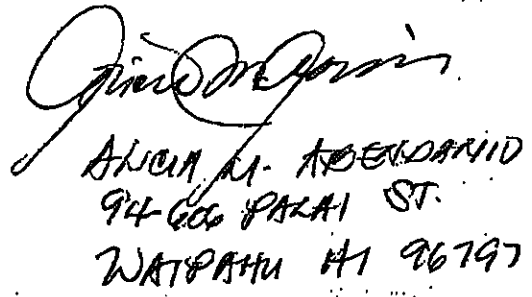 ALICIA M. ABENDANIO
94-606 PALAI ST.
WAIPAHU HI 96797